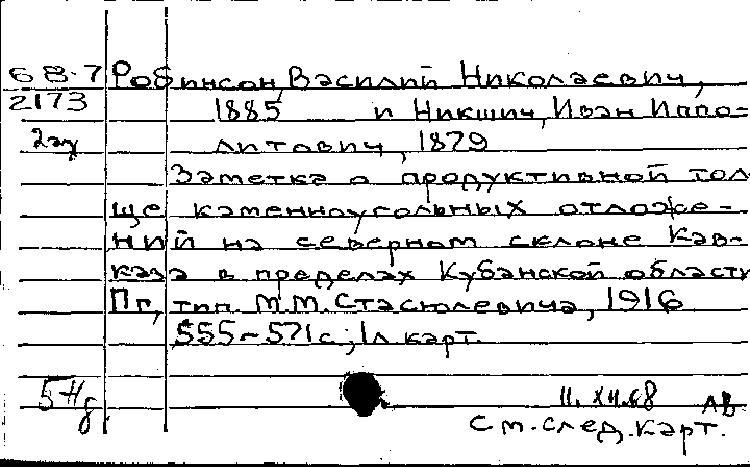 68-7 Робинсон, Василий Николаевич,
2173 1885 и Никшич, Иван Иппо-
2эк литович, 1879
Заметка о продуктивной тол-
ще каменноугольных отложе-
ний на северном склоне Кав-
каза в пределах Кубанской области
Пг, тип. М.М. Стасюлевича, 1916
555-571 с.; 1л карт.
11.XII.68 АВ
См. след. карт.